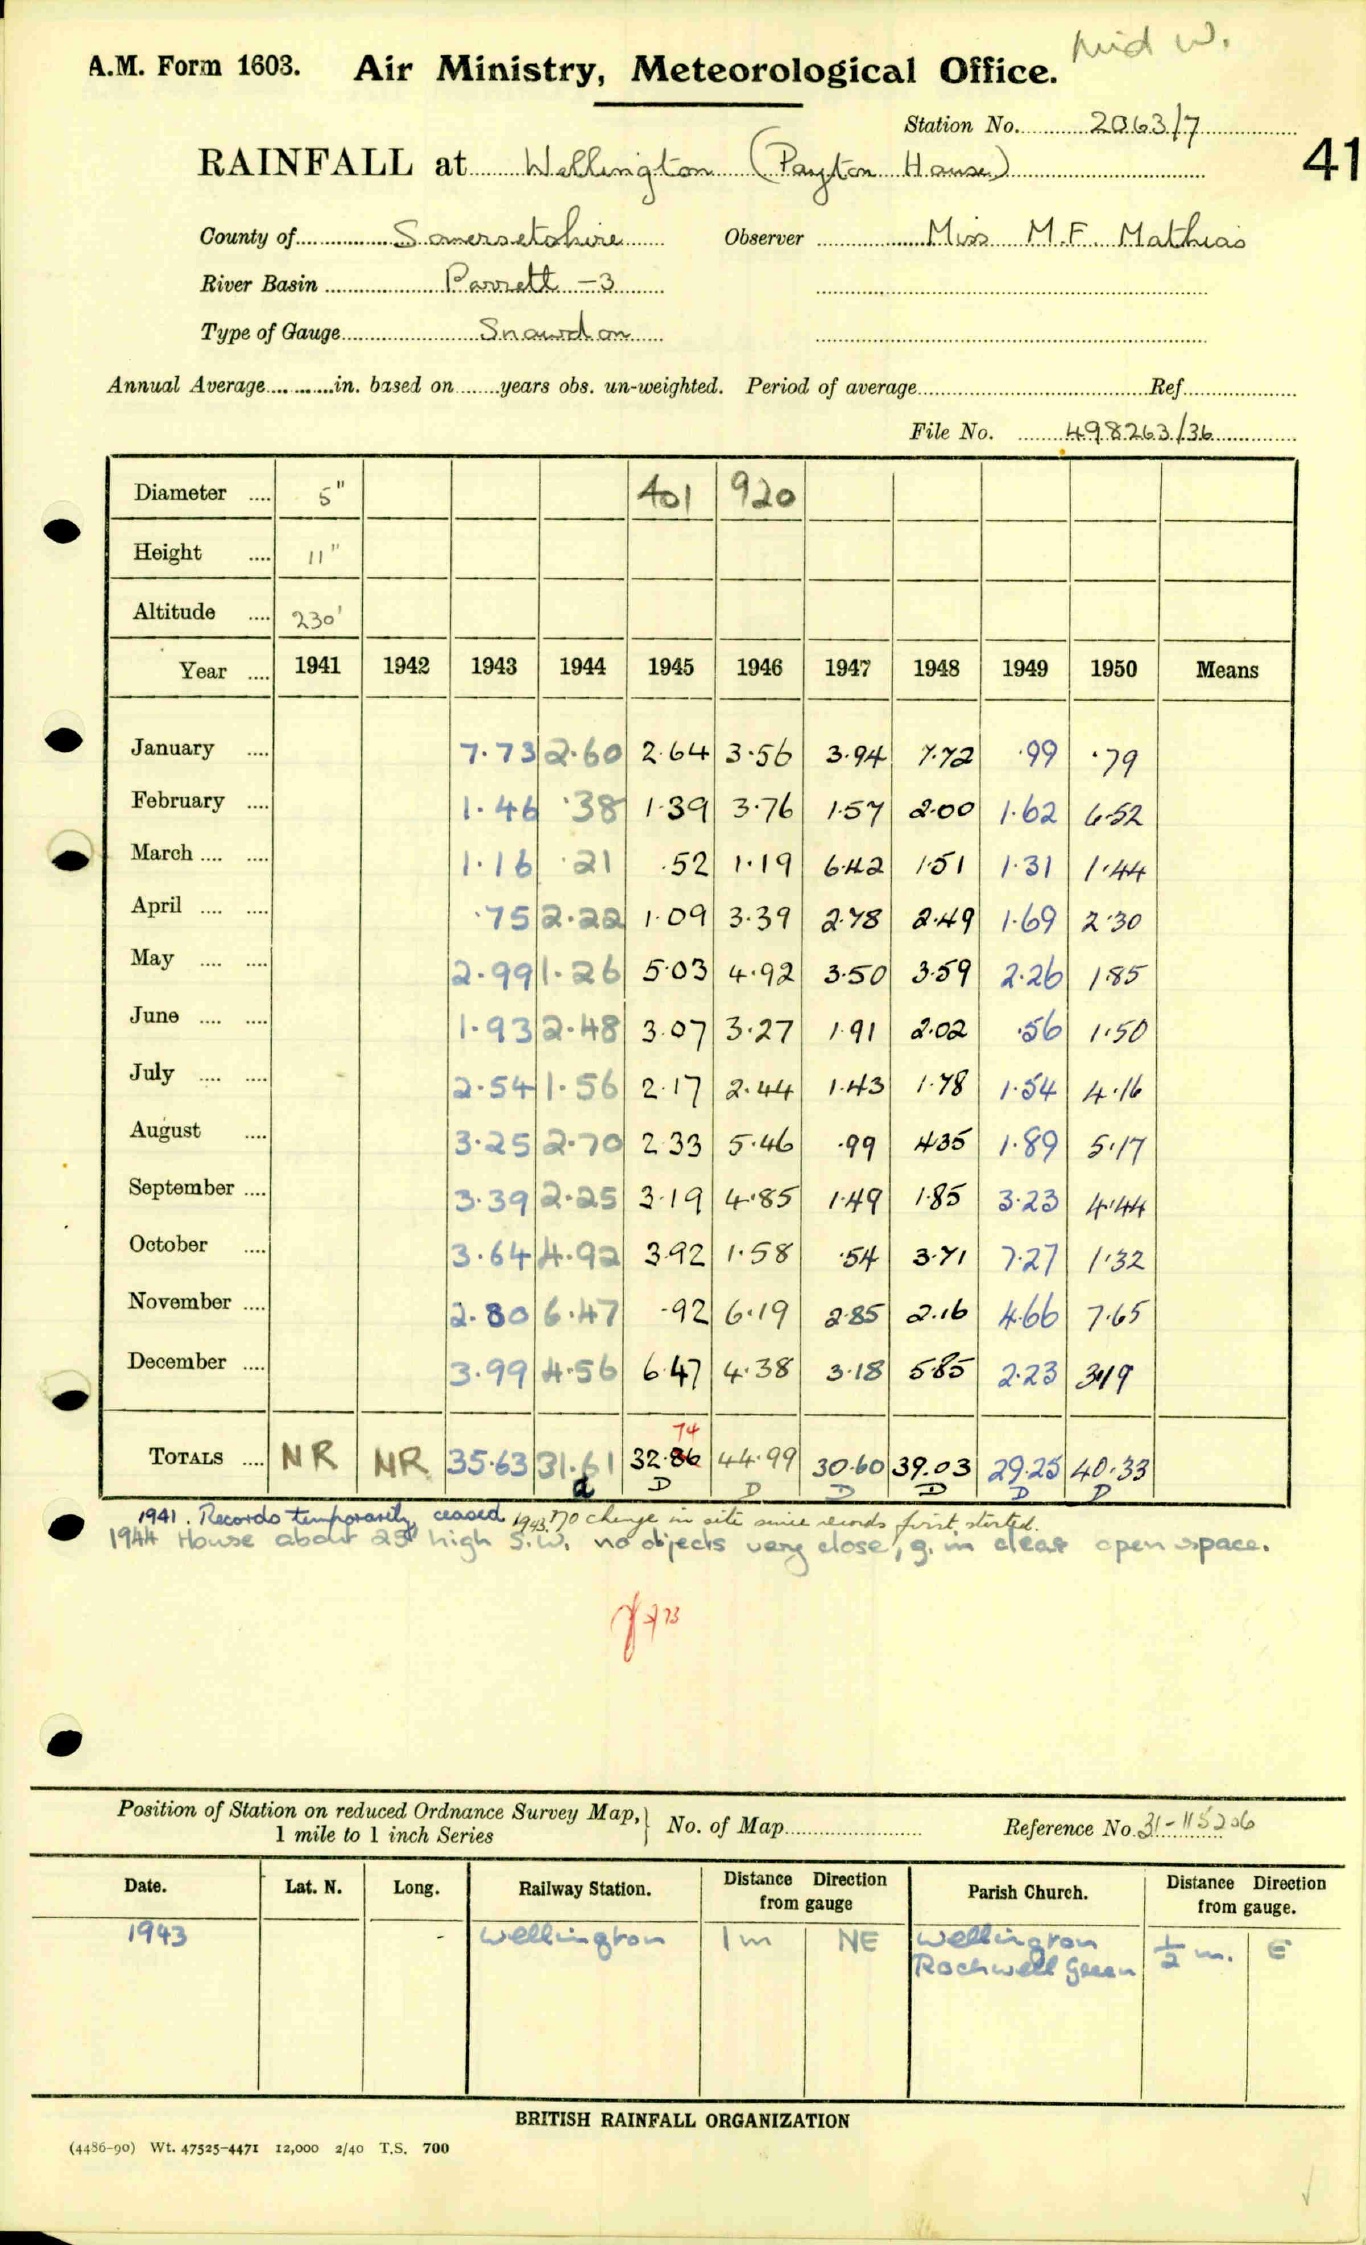 Mid W.
A.M. Form 1603. Air Ministry, Meteorological Office.
Station No. 2063/7
41
RAINFALL at Wellington (Payton House)
County of Somersetshire Observer Miss M.F. Mathias
River Basin Parrett -3
Type of Gauge Snowdon
Annual Average in. based on years obs. un-weighted. Period of average Ref
File No. 498263/36
Diameter 5" 401 920
Height 11"
Altitude 230'
Year 1941 1942 1943 1944 1945 1946 1947 1948 1949 1950 Means
January 7.73 2.60 2.64 3.56 3.94 7.72 .99 .79
February 1.46 .38 1.39 3.76 1.57 2.00 1.62 6.52
March 1.16 .21 .52 1.19 6.42 1.51 1.31 1.44
April .75 2.22 1.09 3.39 2.78 2.49 1.69 2.30
May 2.99 1.26 5.03 4.92 3.50 3.59 2.26 1.85
June 1.93 2.48 3.07 3.27 1.91 2.02 .56 1.50
July 2.54 1.56 2.17 2.44 1.43 1.78 1.54 4.16
August 3.25 2.70 2.33 5.46 .99 4.35 1.89 5.17
September 3.39 2.25 3.19 4.85 1.49 1.85 3.23 4.44
October 3.64 4.92 3.92 1.58 .54 3.71 7.27 1.32
November 2.80 6.47 .92 6.19 2.85 2.16 4.66 7.65
December 3.99 4.56 6.47 4.38 3.18 5.85 2.23 3.19
74
TOTALS NR NR 35.63 31.61 32.86 44.99 30.60 39.03 29.25 40.33
d D D D D D D
1941. Records temporarily ceased 1943. No change in site since records first started.
1944 House about 25' high S.W. no objects very close, g. in clear open space.
Position of Station on reduced Ordnance Survey Map,
1 mile to 1 inch Series
No. of Map Reference No. 31-115206
Date. Lat. N. Long. Railway Station. Distance Direction from gauge Parish Church. Distance Direction from gauge.
1943 - Wellington 1 m NE Wellington
Rockwell Green 1/2 m. E
BRITISH RAINFALL ORGANIZATION
(4486-90) Wt. 47525-4471 12,000 2/40 T.S. 700